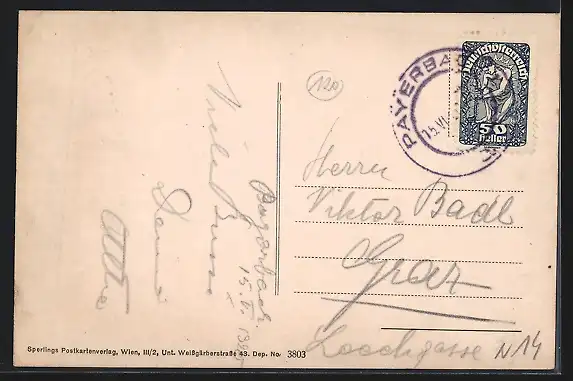 120
PAYERBACH
15.VI
Deutschösterreich
50
Heller
Herrn
Viktor Badl
Graz
N 14
Payerbach
15. VI.
Viele Busse
Sperlings Postkartenverlag, Wien, III/2, Unt. Weißgärberstraße 43. Dep. No. 3803